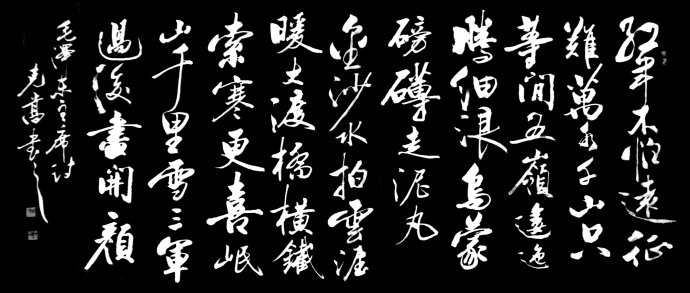 紅軍不怕遠征
難萬水千山只
等間五嶺逶迤
騰細浪烏蒙
磅礴走泥丸
金沙水拍雲涯
暖大渡橋橫鐵
索寒更喜岷
山千里雪三軍
過後盡開顏
毛澤東主席詩
克嵩書